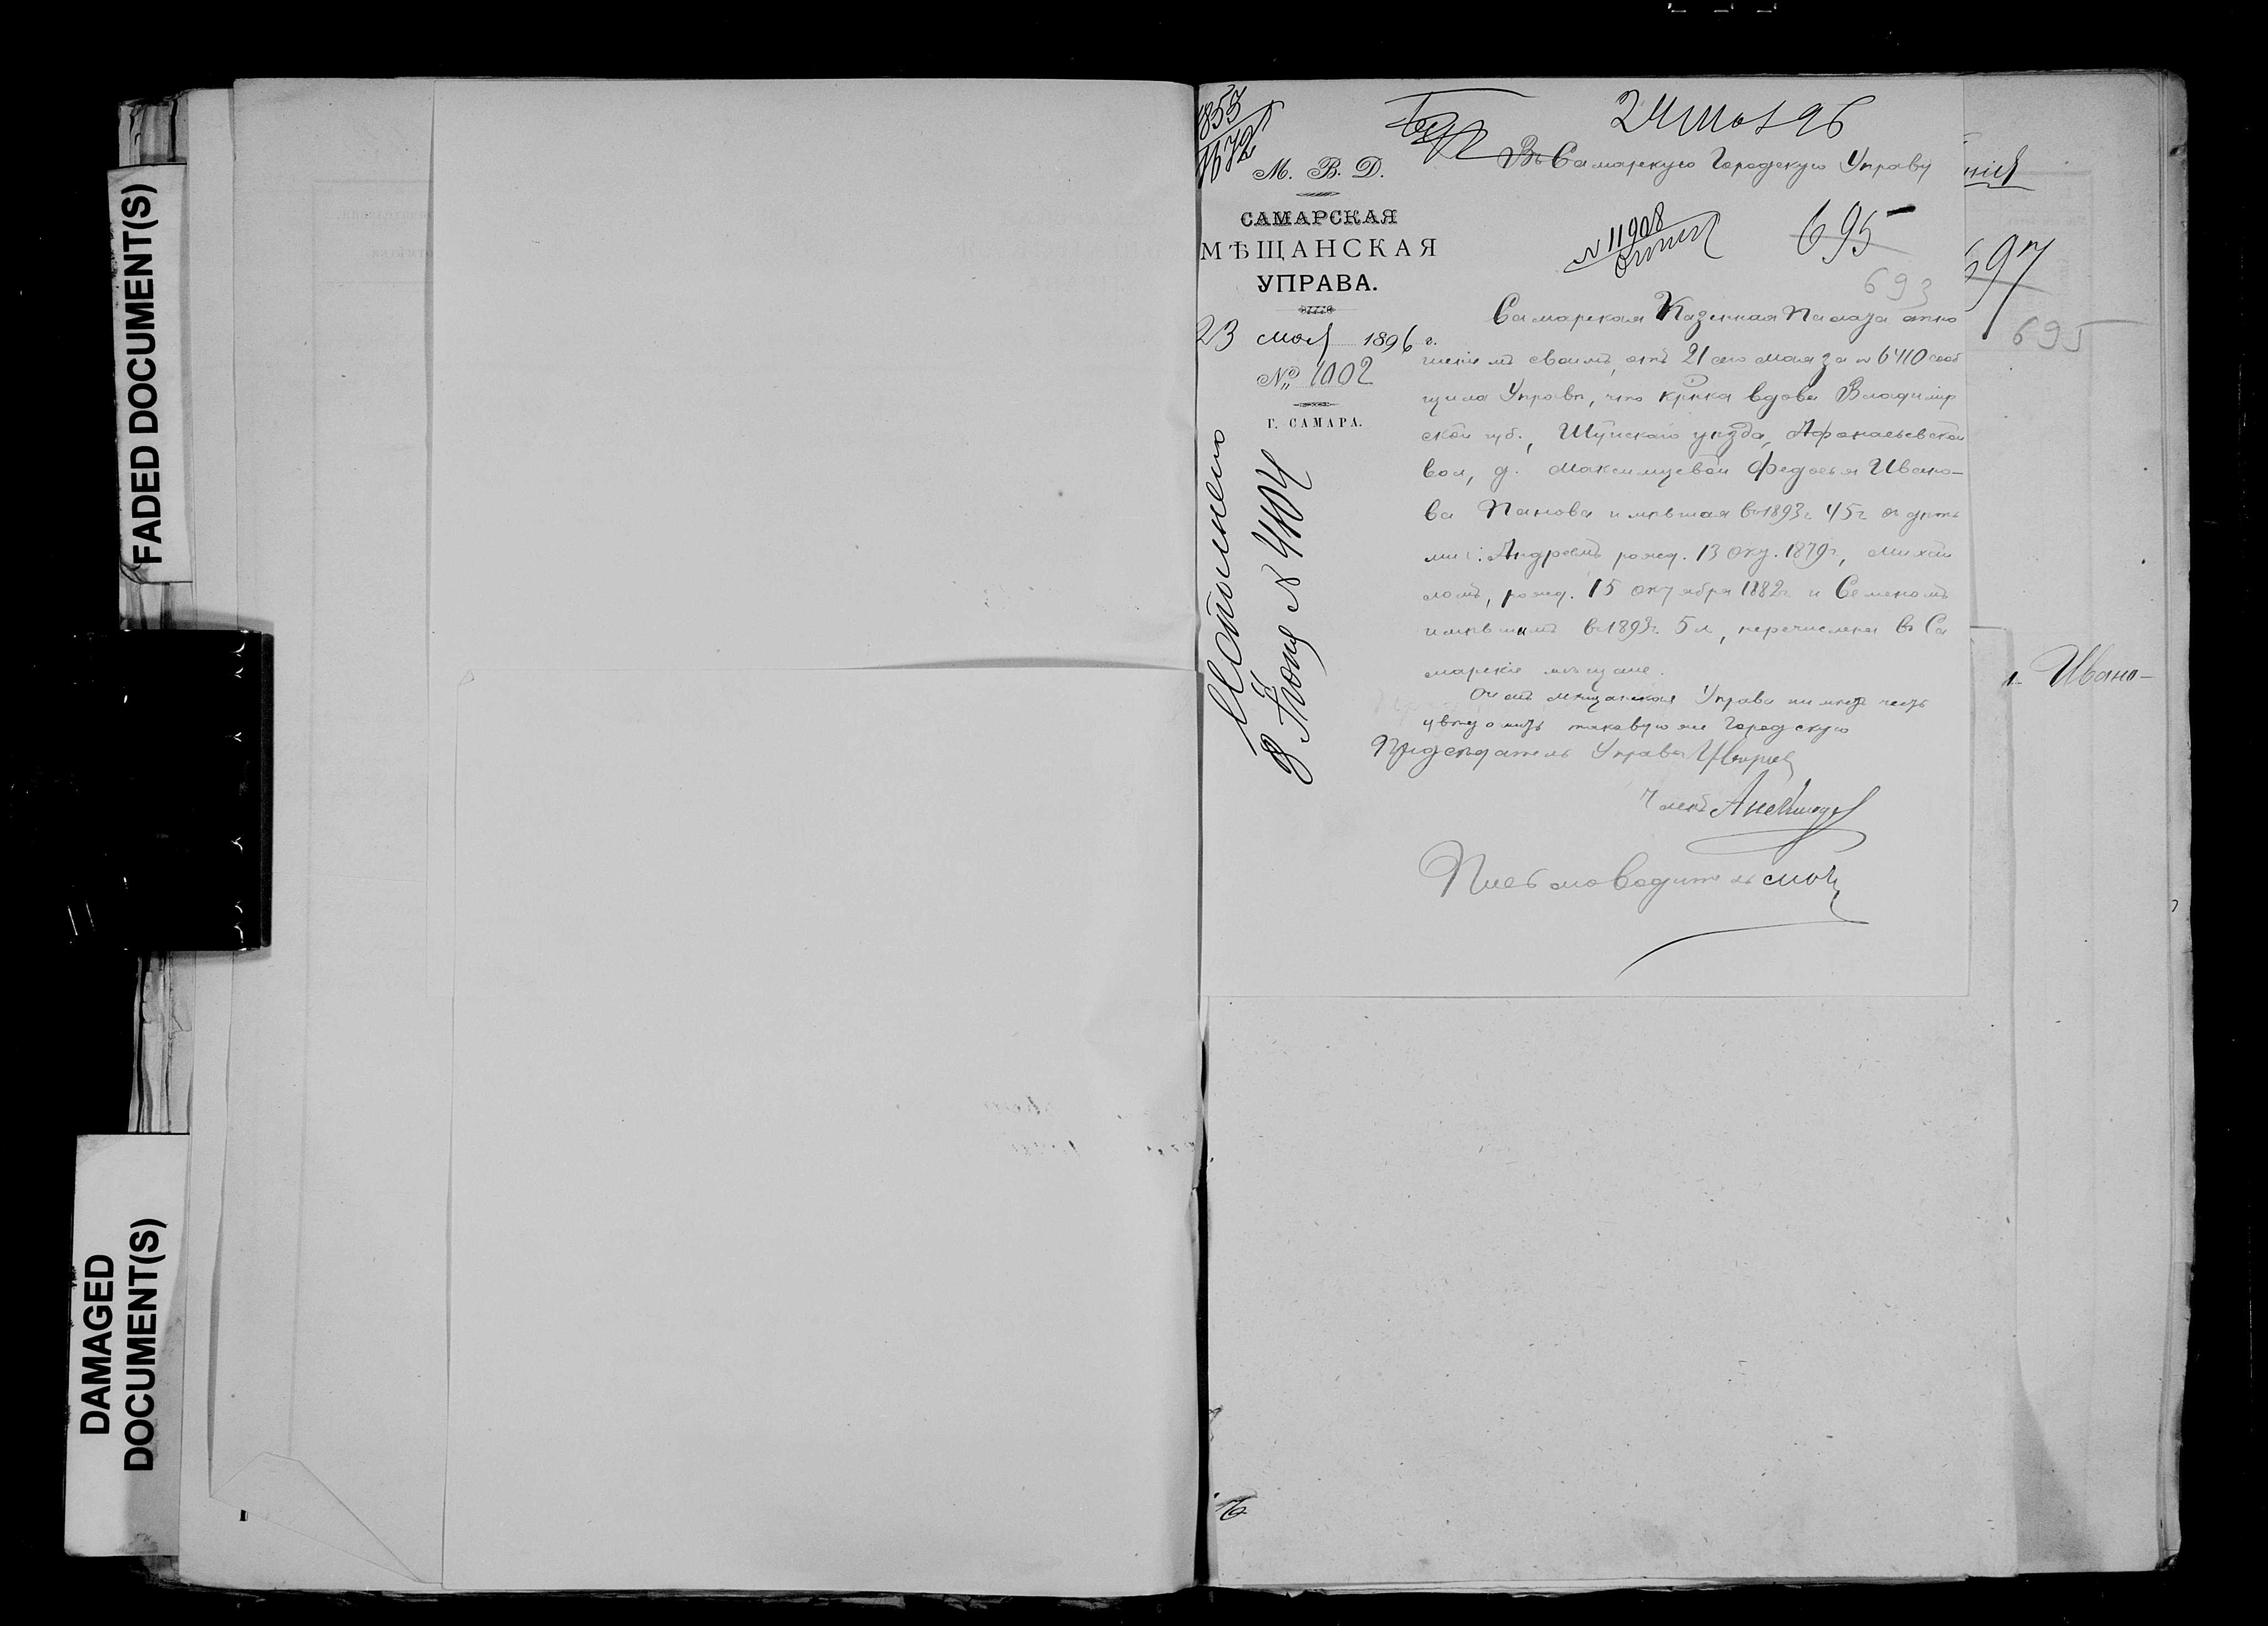 FADED DOCUMENT(S)
DAMAGED
DOCUMENT(S)
1853
24 мая 96
М. В. Д.
САМАРСКАЯ
МѢЩАНСКАЯ
УПРАВА.
23 мая 1896 г.
№ 1002
Г. САМАРА.
Исполнено
8 Июня № 4104
Въ Самарскую Городскую Управу
№ 11908
695
693
Самарская Казенная Палата отно
шеніемъ своимъ, отъ 21 сего мая за № 6410 сооб
щила Управѣ, что кр-ка вдова Владимір
ской губ., Шуйскаго уѣзда, Афанасьевской
вол., д. Максимцевой Федосья Ивано-
ва Панова имѣвшая въ 1893 г. 45 г. съ дѣть
ми: Андреемъ рожд. 13 Окт. 1879 г., Михаи
ломъ, рожд. 15 октября 1882 г. и Семеномъ
имѣвшимъ въ 1893 г. 5 л., перечислена въ Са
марскіе мѣщане.
О чемъ мѣщанская Управа имѣетъ честь
увѣдомить таковую же Городскую
Предсѣдатель Управы
Членъ
Письмоводитель
нія
697
695
Ивано-